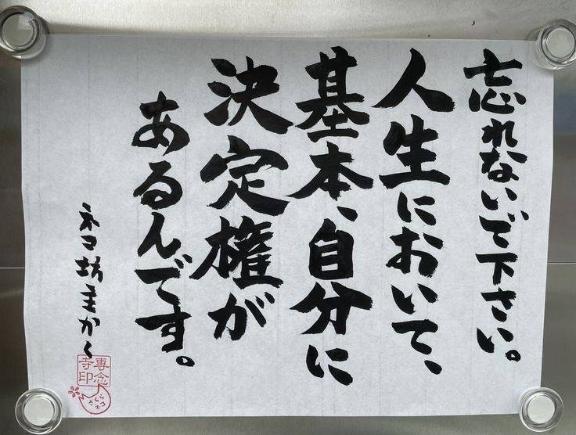 忘れないで下さい。
人生において、
基本、自分に
決定権が
あるんです。
ネコ坊主かく
専念
寺印